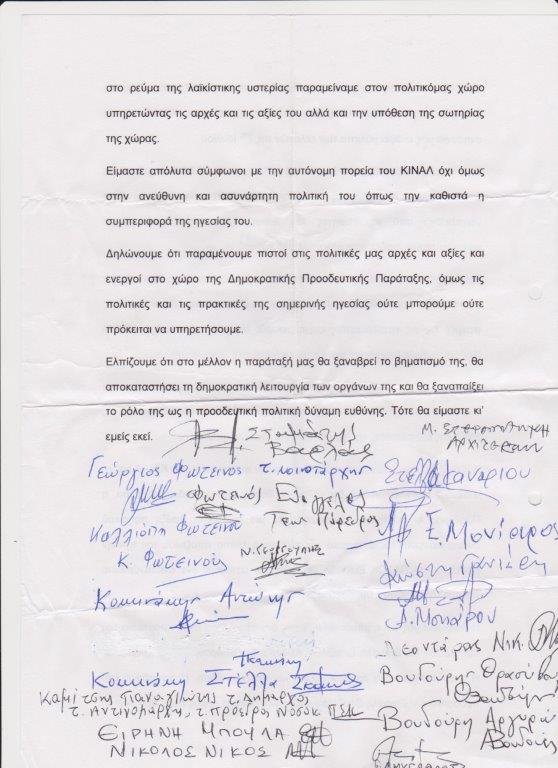 στο ρεύμα της λαϊκίστικης υστερίας παραμείναμε στον πολιτικόμας χώρο
υπηρετώντας τις αρχές και τις αξίες του αλλά και την υπόθεση της σωτηρίας
της χώρας.
Είμαστε απόλυτα σύμφωνοι με την αυτόνομη πορεία του ΚΙΝΑΛ όχι όμως
στην ανεύθυνη και ασυνάρτητη πολιτική του όπως την καθιστά η
συμπεριφορά της ηγεσίας του.
Δηλώνουμε ότι παραμένουμε πιστοί στις πολιτικές μας αρχές και αξίες και
ενεργοί στο χώρο της Δημοκρατικής Προοδευτικής Παράταξης, όμως τις
πολιτικές και τις πρακτικές της σημερινής ηγεσίας ούτε μπορούμε ούτε
πρόκειται να υπηρετήσουμε.
Ελπίζουμε ότι στο μέλλον η παράταξή μας θα ξαναβρεί το βηματισμό της, θα
αποκαταστήσει τη δημοκρατική λειτουργία των οργάνων της και θα ξαναπαίξει
το ρόλο της ως η προοδευτική πολιτική δύναμη ευθύνης. Τότε θα είμαστε κι'
εμείς εκεί.
Σταμάτης
Βαρλάς
Γεώργιος Φωτεινός τ.
Φωτεινός
Καλλιόπη Φωτεινού
Κ. Φωτεινός
Κοκκινάκης Αντώνης
Λ. Μονιάρου
Λεοντάρας Νικ.
Κοκκινάκη Στέλλα
Βουδούρης
Καμίτσης Παναγιώτης τ. Δήμαρχος
Βουδούρη Αργυρώ
ΕΙΡΗΝΗ ΜΠΟΥΛΑ
ΝΙΚΟΛΟΣ ΝΙΚΟΣ